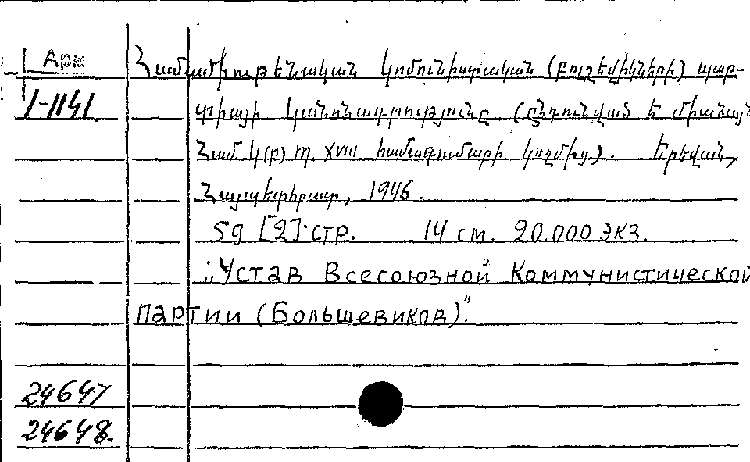 Арм
1-1141
Համամիութենական կոմունիստական (բոլշեվիկների) պար-
տիայի կանոնադրությունը (ընդունված ե միանայն
Համ.Կ(բ)Պ. XVIII համագումարի կողմից). Երեվան,
Հայպետհրատ, 1946.
59 [2] стр. 14 см. 20.000 экз.
"Устав Всесоюзной Коммунистической
партии (Большевиков)".
24647
24648.